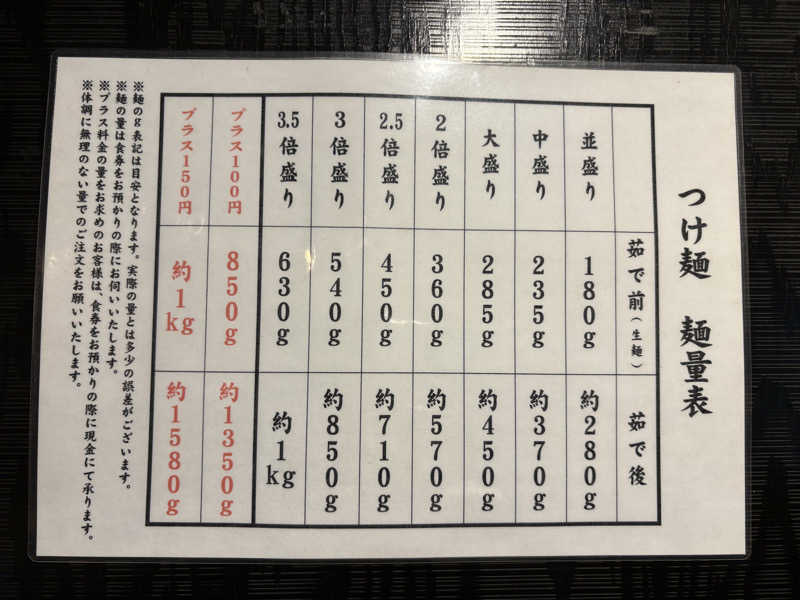 つけ麺　麺量表
茹で前（生麺）　茹で後
並盛り　180g　約280g
中盛り　235g　約370g
大盛り　285g　約450g
2倍盛り　360g　約570g
2.5倍盛り　450g　約710g
3倍盛り　540g　約850g
3.5倍盛り　630g　約1kg
プラス100円　850g　約1350g
プラス150円　約1kg　約1580g
※麺のg表記は目安となります。実際の量とは多少の誤差がございます。
※麺の量は食券をお預かりの際にお伺いいたします。
※プラス料金の量をお求めのお客様は、食券をお預かりの際に現金にて承ります。
※体調に無理のない量でのご注文をお願いいたします。